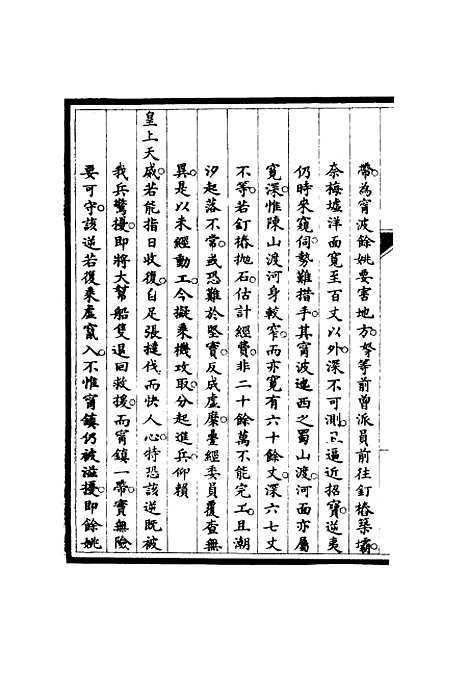 帶。為甯波餘姚要害地方。孥等前曾派員前往釘樁築壩。
奈梅墟洋面寬至百丈以外。深不可測。且逼近招寶。逆夷
仍時來窺伺。勢難措手。其甯波迤西之蜀山渡。河面亦屬
寬深。惟陳山渡河身較窄。而亦寬有六十餘丈。深六七丈
不等。若釘樁拋石。估計經費。非二十餘萬不能完工。且潮
汐起落不常。或恐難於堅實。反成虛糜。臺經委員覆查無
異。是以未經動工。今擬乘機攻取。分起進兵。仰賴
皇上天威。若能指日收復。自足張撻伐。而快人心。特恐該逆既被
我兵驚擾。即將大幫船隻退回救援。而甯鎮一帶。實無險
要可守。該逆若復乘虛竄入。不惟甯鎮仍被滋擾。即餘姚